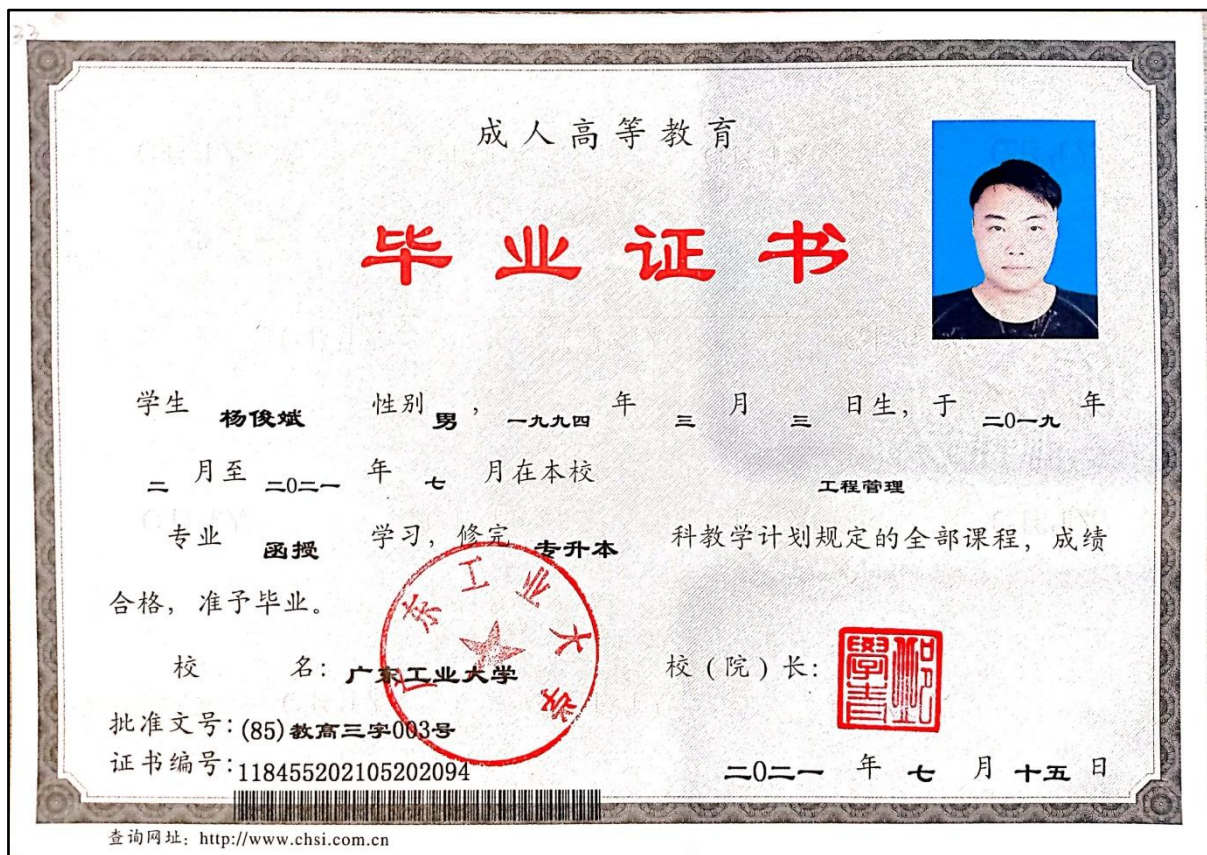 33
成人高等教育
毕业证书
学生 杨俊斌 性别 男 ， 一九九四 年 三 月 三 日生，于 二0一九 年
二 月至 二0二一 年 七 月在本校 工程管理
专业 函授 学习，修完 专升本 科教学计划规定的全部课程，成绩
合格，准予毕业。
广东工业大学
校 名：广东工业大学 校（院）长：
批准文号：(85)教高三字003号
证书编号：118455202105202094 二0二一 年 七 月 十五 日
查询网址：http://www.chsi.com.cn